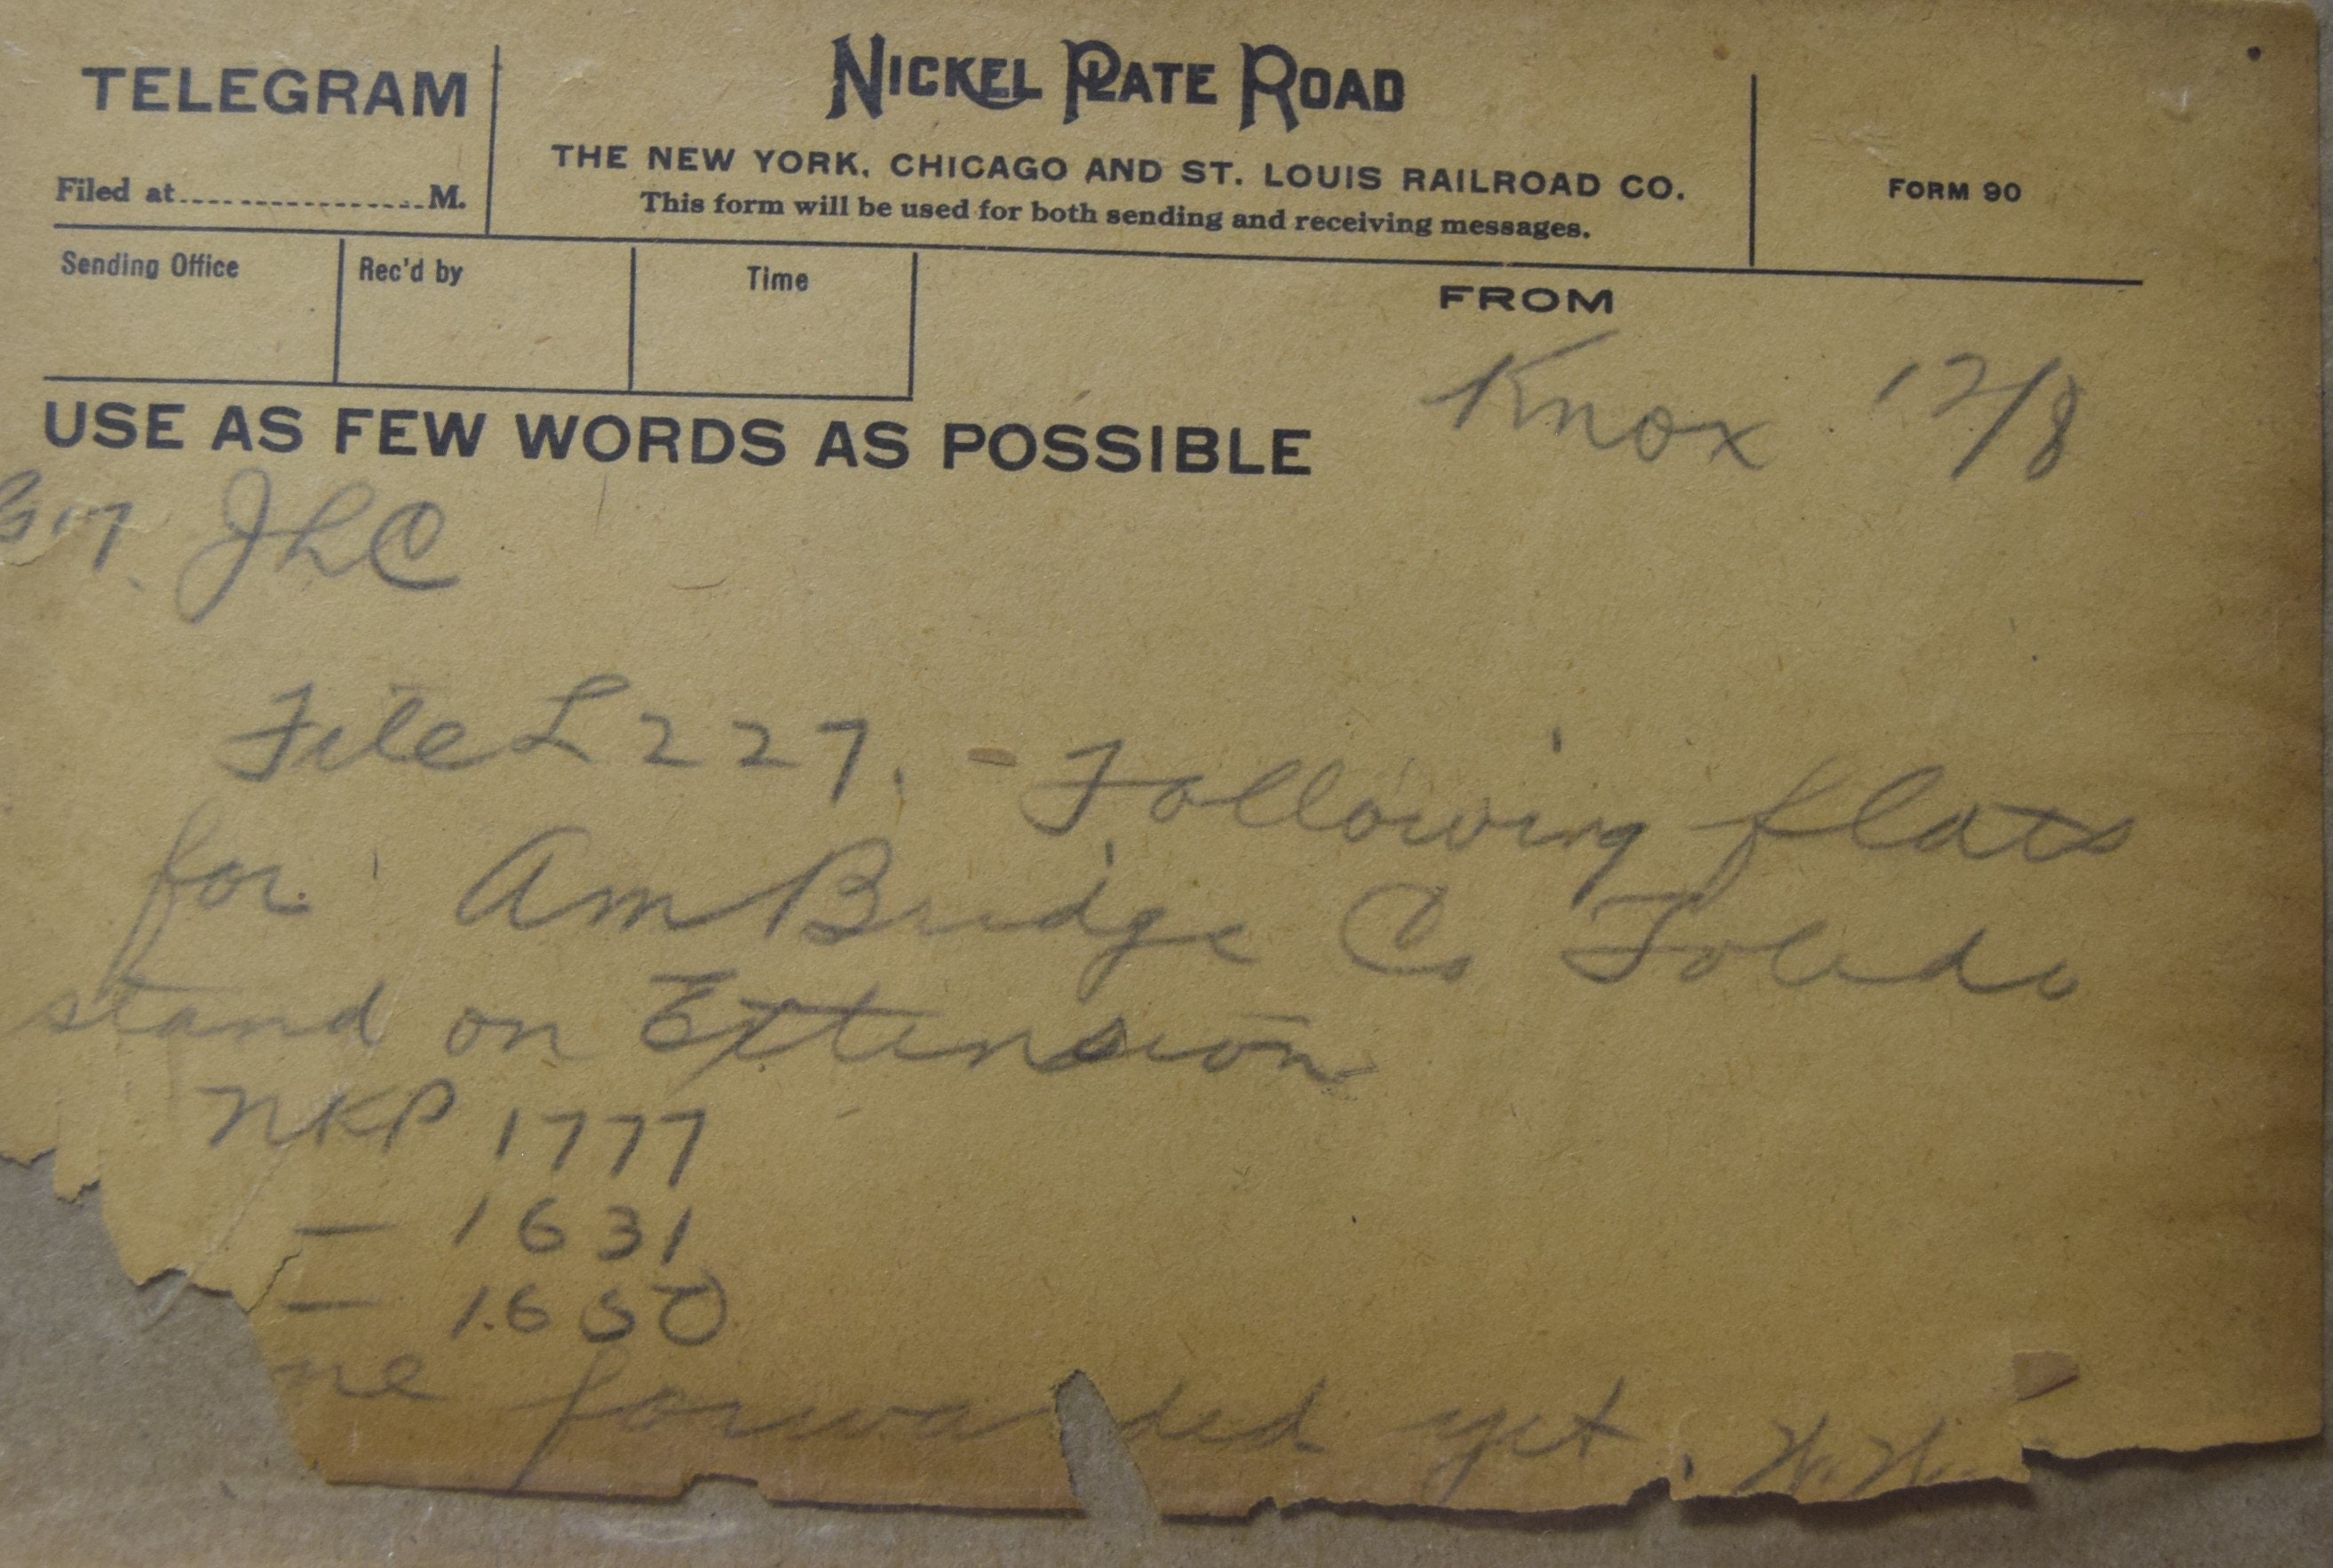 TELEGRAM
NICKEL PLATE ROAD
THE NEW YORK, CHICAGO AND ST. LOUIS RAILROAD CO.
This form will be used for both sending and receiving messages.
Filed at................M.
FORM 90
Sending Office
Rec'd by
Time
FROM
Knox 12/8
USE AS FEW WORDS AS POSSIBLE
JLC
File L 227. - Following flats
for Am Bridge Co Toledo
stand on Extension
NKP 1777
— 1631
— 1650
ne forwarded yet.